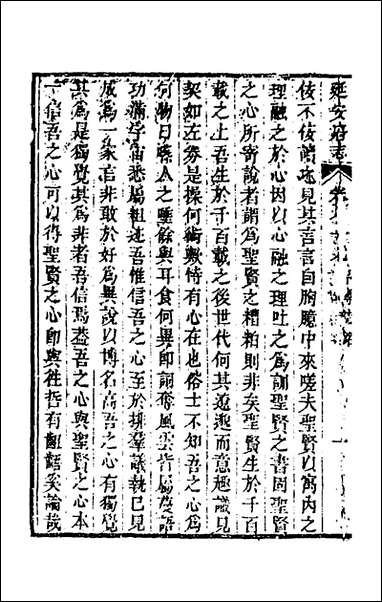 延安府志
佞不佞讀 見其言言自胸臆中來嗟夫聖賢以寓內之
理融之於心因以心融之理吐之為訓聖賢之書固聖賢
之心所寄說者謂為聖賢之糟粕則非矣聖賢生於千百
載之上吾生於千百載之後世代何其遼邈而意趣識見
契如左券是操何術數恃有心在也俗士不知吾之心為
何物日 人之唾餘與耳食何異即詞奪風雲皆屬蔓語
功滿宇宙悉屬粗迹吾惟信吾之心至於排羣議執己見
成為一家言非敢於好為異說以博名高吾之心有獨覺
其為是獨覺其為非者吾信焉葢吾之心與聖賢之心本
一信吾之心可以得聖賢之心即與往哲有齟齬奚論哉